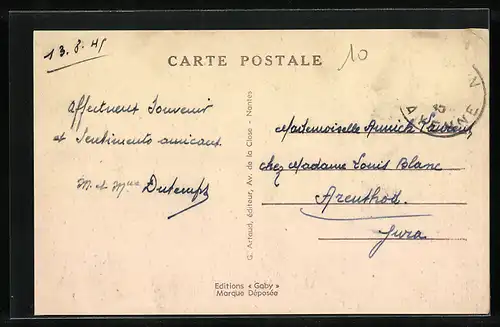 13.8.45
CARTE POSTALE
10
Affectueux Souvenir
et Sentiments amicaux
M. et Mme Dutemps
G. Artaud, éditeur, Av. de la Close - Nantes
Mademoiselle Annick
chez Madame Louis Blanc
Arenthod.
Jura
Editions « Gaby »
Marque Déposée